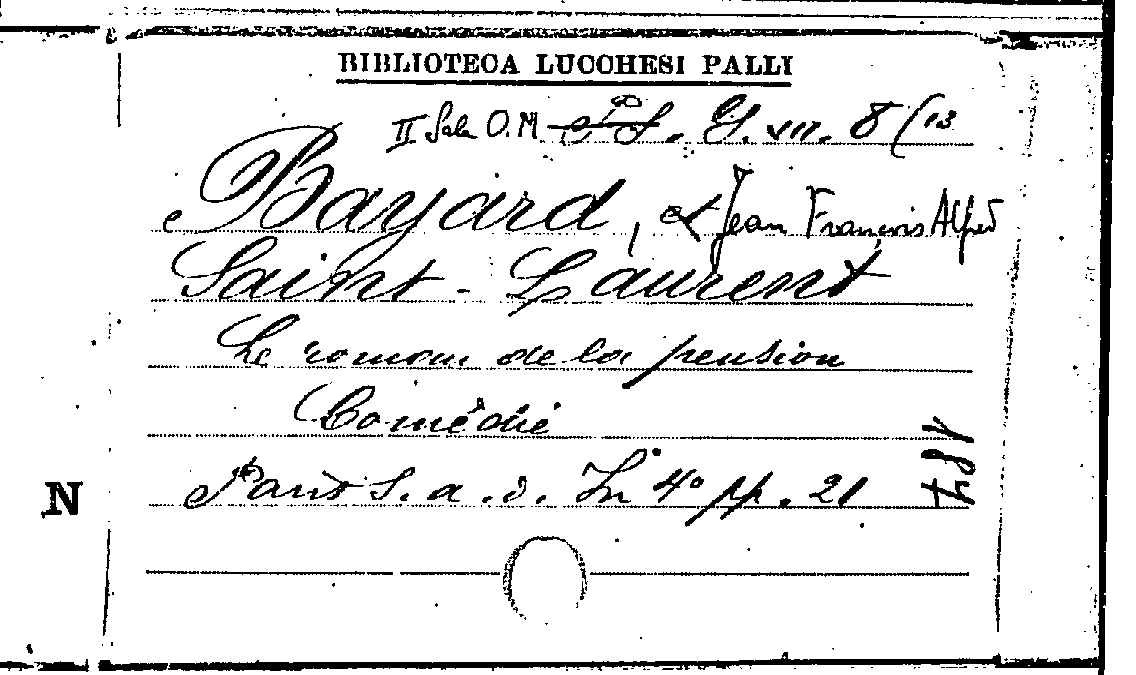 BIBLIOTECA LUCCHESI PALLI
II Sala O.M. G. VII. 8 (13
Bayard, et Jean François Alfred
Saint-Laurent
Le roman de la pension
Comédie
Paris s. a. d. In 4º pp. 21
N